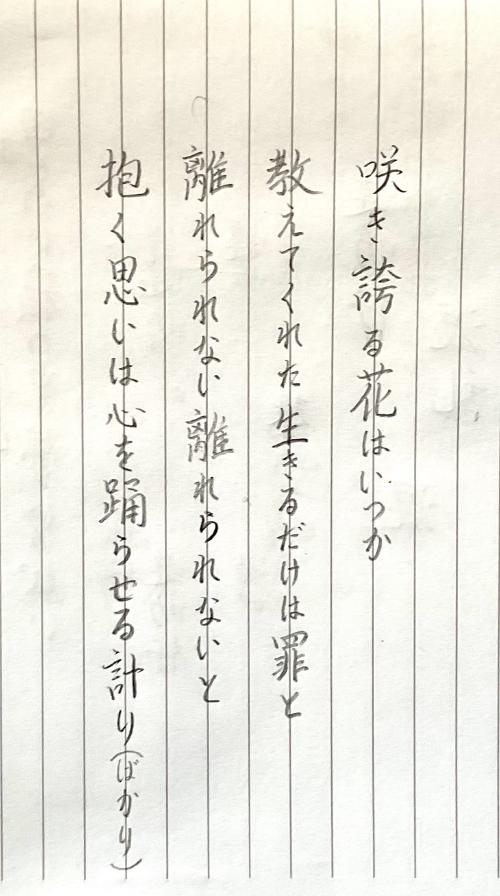 咲き誇る花はいつか
教えてくれた生きるだけは罪と
離れられない離れられないと
抱く思いは心を踊らせる計り(ばかり)